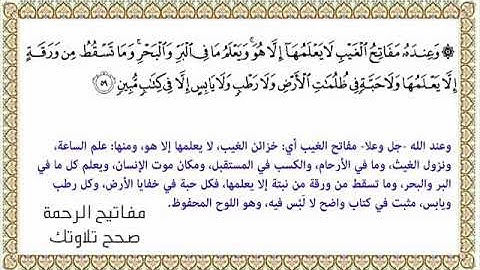 ۞ وَعِندَهُۥ مَفَاتِحُ ٱلۡغَيۡبِ لَا يَعۡلَمُهَآ إِلَّا هُوَۚ وَيَعۡلَمُ مَا فِي ٱلۡبَرِّ وَٱلۡبَحۡرِۚ وَمَا تَسۡقُطُ مِن وَرَقَةٍ
إِلَّا يَعۡلَمُهَا وَلَا حَبَّةٖ فِي ظُلُمَٰتِ ٱلۡأَرۡضِ وَلَا رَطۡبٖ وَلَا يَابِسٍ إِلَّا فِي كِتَٰبٖ مُّبِينٖ ٥٩
وعند الله -جل وعلا- مفاتح الغيب أي: خزائن الغيب، لا يعلمها إلا هو، ومنها: علم الساعة،
ونزول الغيث، وما في الأرحام، والكسب في المستقبل، ومكان موت الإنسان، ويعلم كل ما في
البر والبحر، وما تسقط من ورقة من نبتة إلا يعلمها، فكل حبة في خفايا الأرض، وكل رطب
ويابس، مثبت في كتاب واضح لا لَبْس فيه، وهو اللوح المحفوظ.
مفاتيح الرحمة
صحح تلاوتك